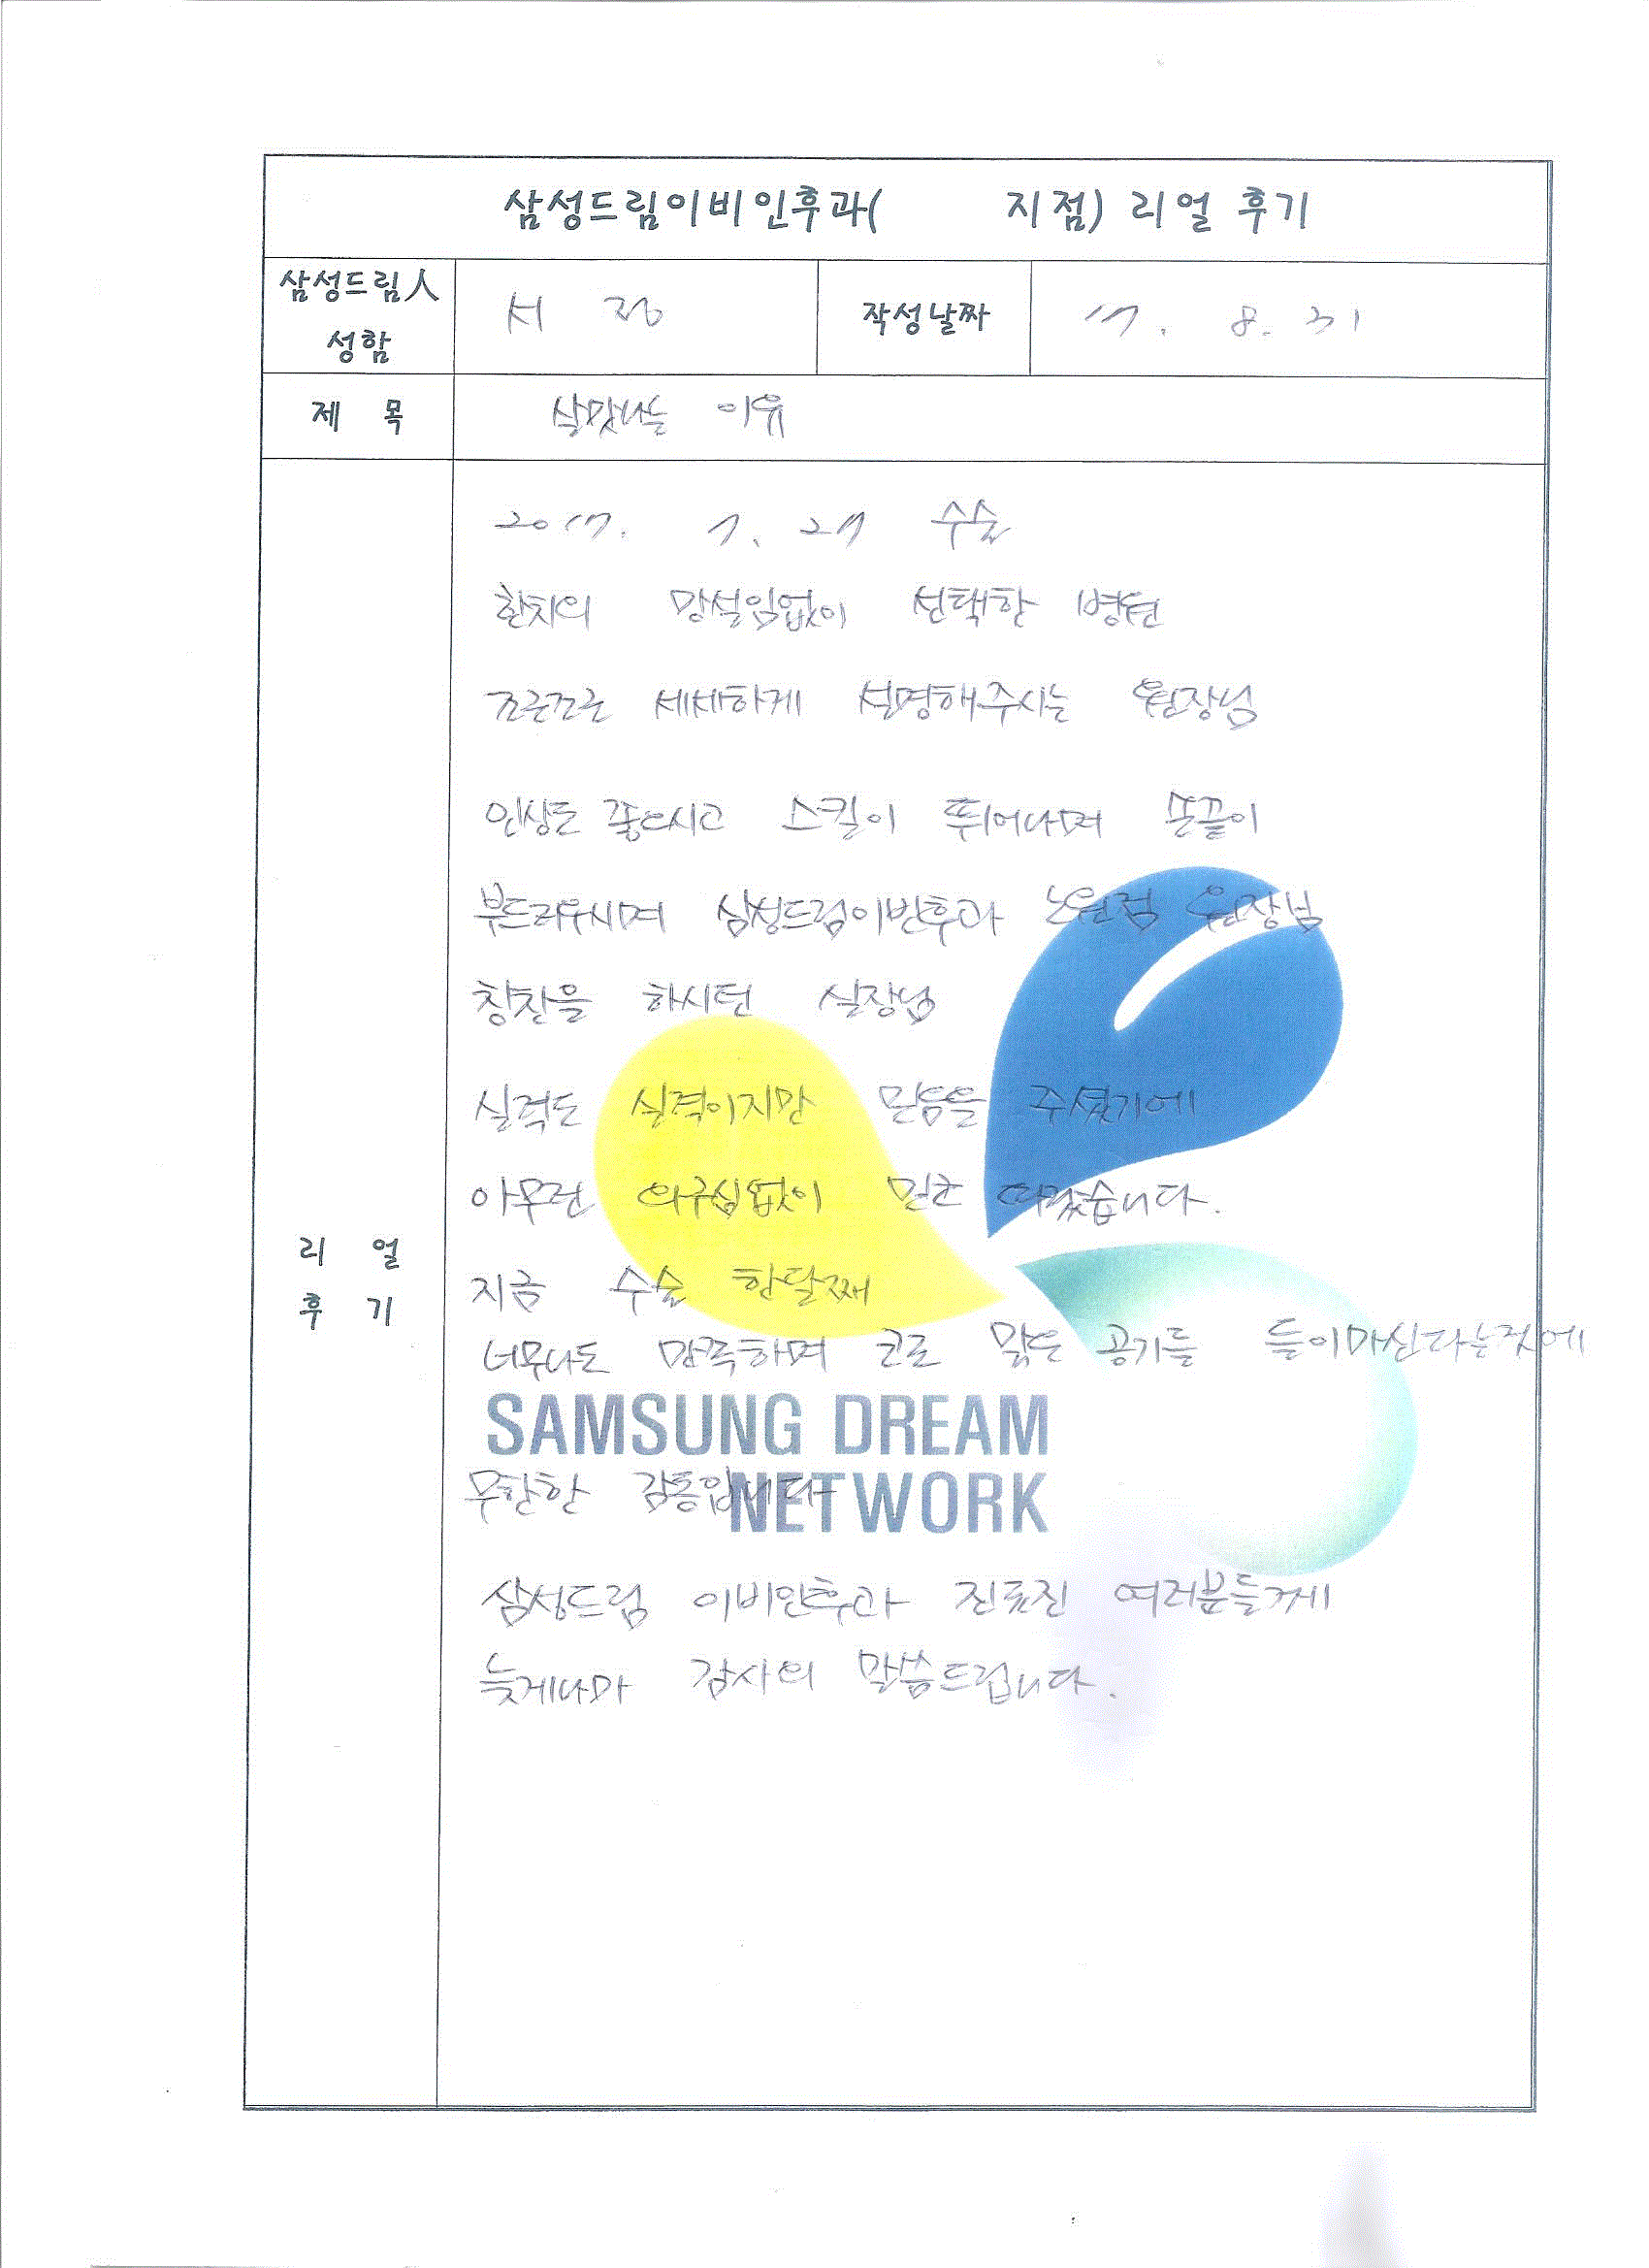 삼성드림이비인후과( 지점) 리얼 후기
삼성드림人
성함
서 정
작성날짜
17. 8. 31
제 목
살맛나는 이유
2017. 7. 27 수술
한치의 망설임없이 선택한 병원
조근조근 세세하게 설명해주시는 원장님
인상도 좋으시고 스킬이 뛰어나며 손끝이
부드러우시며 삼성드림이빈후과 노원점 원장님
칭찬을 하시던 실장님
실력도 실력이지만 믿음을 주셨기에
아무런 의구심없이 믿고 따랐습니다.
리 얼
후 기
지금 수술 한달째
너무나도 만족하며 코로 맑은 공기를 들이마신다는것에
SAMSUNG DREAM
NETWORK
무한한 감동입니다
삼성드림 이비인후과 진료진 여러분들께
늦게나마 감사의 말씀드립니다.